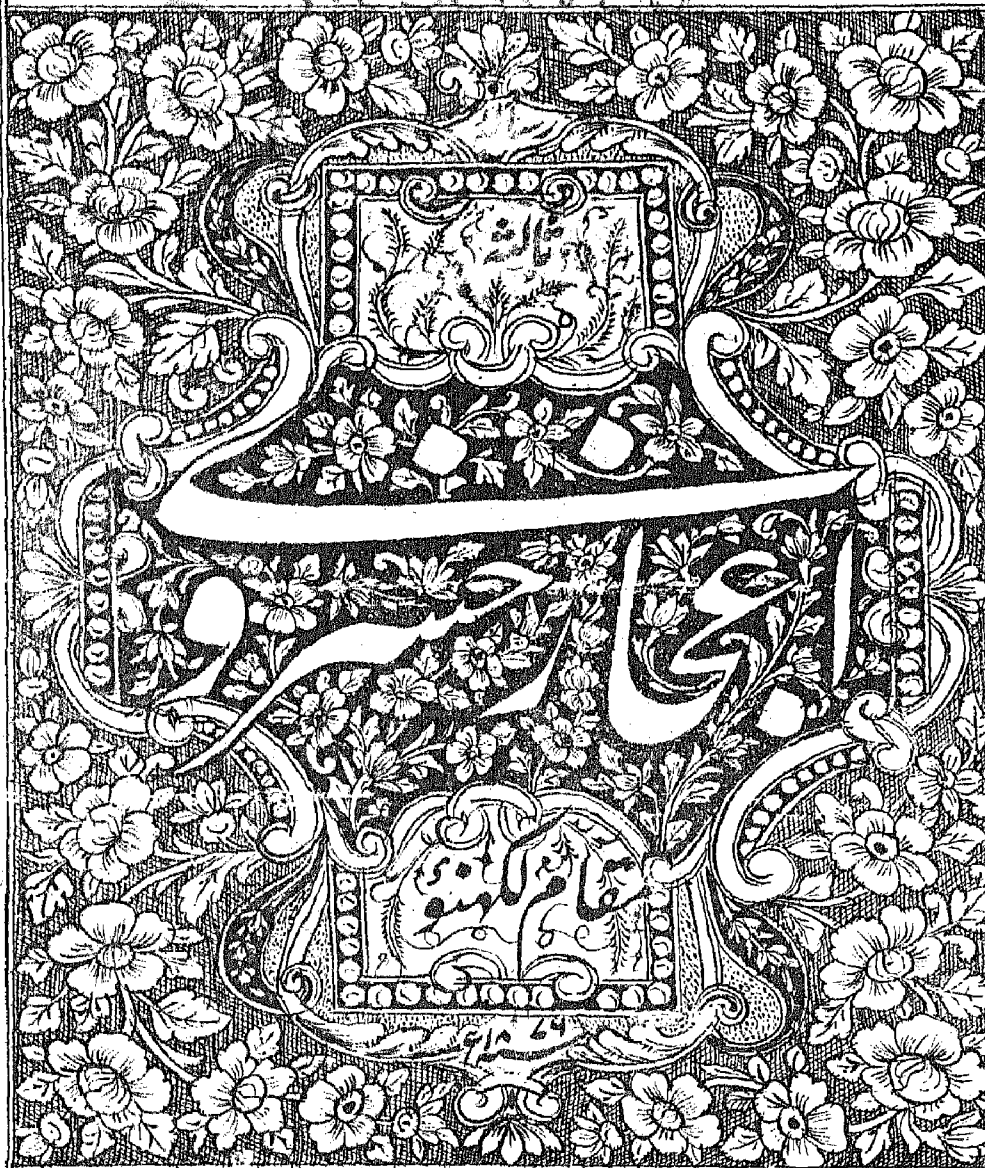 ثالث
اعجاز خسروی
بمقام لکھنؤ
۱۸۷۶ء